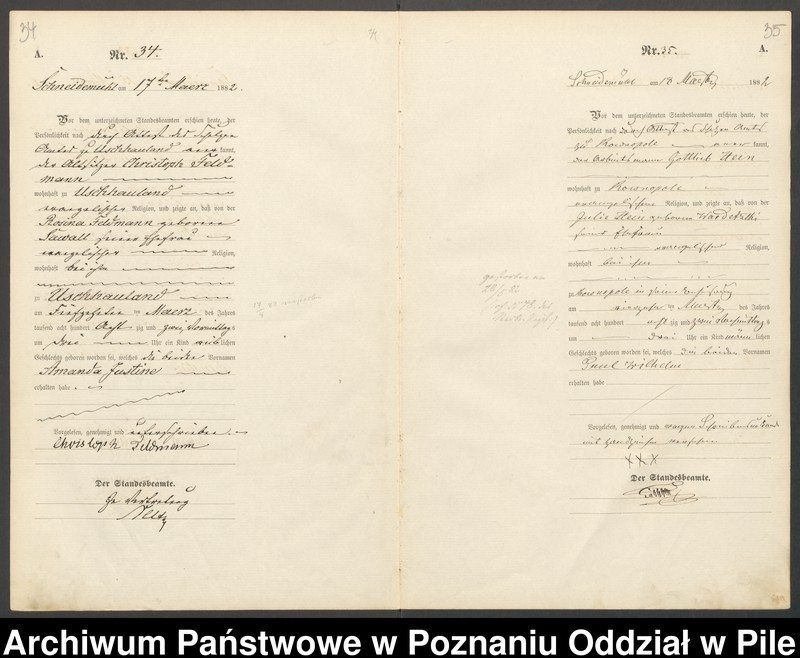 34
A.
Nr. 34.
Schneidemühl am 17ten Maerz 1882.
Vor dem unterzeichneten Standesbeamten erschien heute, der
Persönlichkeit nach durch Attest des Schulzen
Amtes zu Uschhauland kannt,
der Altsitzer Christoph Feld-
mann
wohnhaft zu Uschhauland
evangelischer Religion, und zeigte an, daß von der
Rosina Feldmann geborene
Sawall seiner Ehefrau
evangelischer Religion,
wohnhaft bei ihm
zu Uschhauland
am Fünfzehnten Maerz des Jahres
tausend acht hundert Acht zig und zwei Vormittags
um drei Uhr ein Kind weiblichen
Geschlechts geboren worden sei, welches die beiden Vornamen
Amanda Justine
erhalten habe.
Vorgelesen, genehmigt und unterschrieben
Christoph Feldmann
Der Standesbeamte.
In Vertretung
35
Nr. 35.
A.
Schneidemühl am 18 Maerz 1882
Vor dem unterzeichneten Standesbeamten erschien heute, der
Persönlichkeit nach durch Attest des Schulzen Amts
zu Kownopole kannt,
der Arbeitsmann Gottlieb Hein
wohnhaft zu Kownopole
evangelischer Religion, und zeigte an, daß von der
Julie Hein geborene
seiner Ehefrau
evangelischer Religion,
wohnhaft bei ihm
zu Kownopole in seiner Behausung
am vierzehnten Maerz des Jahres
tausend acht hundert acht zig und zwei Nachmittags
um drei Uhr ein Kind männlichen
Geschlechts geboren worden sei, welches die beiden Vornamen
Paul Wilhelm
erhalten habe
Vorgelesen, genehmigt und wegen Schreibensunkunde
mit Handzeichen versehen
XXX
Der Standesbeamte.
gestorben am
Archiwum Państwowe w Poznaniu Oddział w Pile